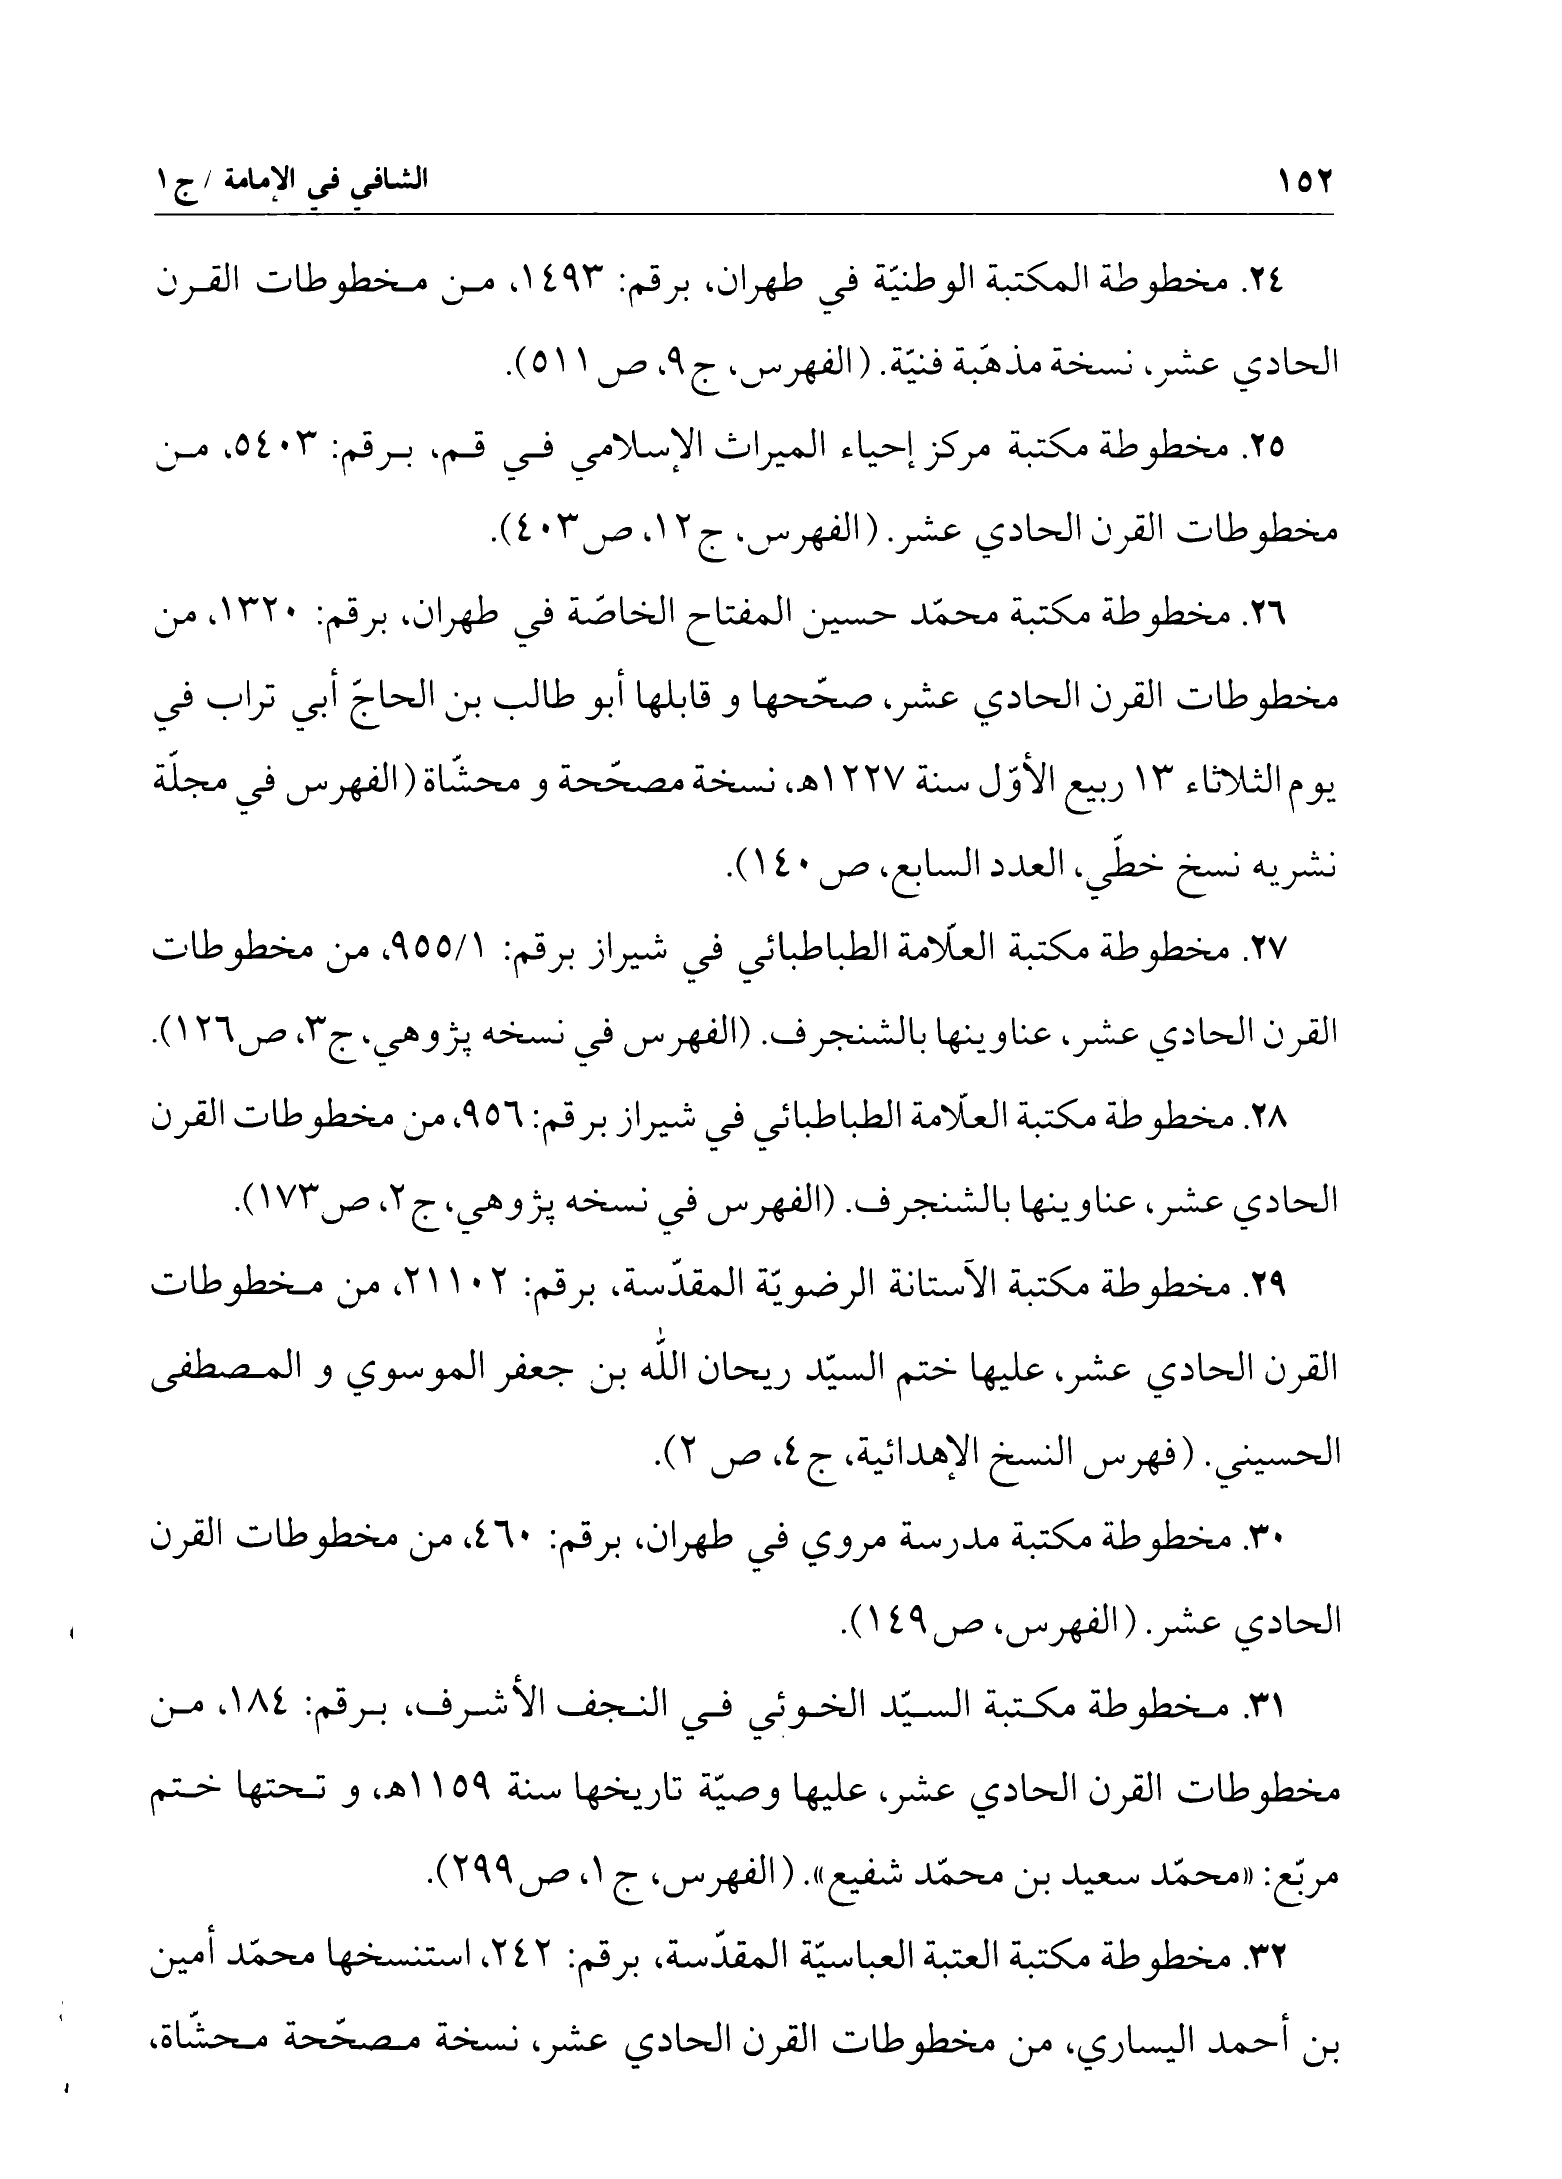 ١٥٢ الشافي في الإمامة / ج١
٢٤. مخطوطة المكتبة الوطنيّة في طهران، برقم: ١٤٩٣، من مخطوطات القرن
الحادي عشر، نسخة مذهّبة فنيّة. (الفهرس، ج٩، ص٥١١).
٢٥. مخطوطة مكتبة مركز إحياء الميراث الإسلامي في قم، برقم: ٥٤٠٣، من
مخطوطات القرن الحادي عشر. (الفهرس، ج١٢، ص٤٠٣).
٢٦. مخطوطة مكتبة محمّد حسين المفتاح الخاصّة في طهران، برقم: ١٣٢٠، من
مخطوطات القرن الحادي عشر، صحّحها و قابلها أبو طالب بن الحاجّ أبي تراب في
يوم الثلاثاء ١٣ ربيع الأوّل سنة ١٢٢٧هـ، نسخة مصحّحة و محشّاة (الفهرس في مجلّة
نشريه نسخ خطّي، العدد السابع، ص١٤٠).
٢٧. مخطوطة مكتبة العلّامة الطباطبائي في شيراز برقم: ٩٥٥/١، من مخطوطات
القرن الحادي عشر، عناوينها بالشنجرف. (الفهرس في نسخه پژوهي، ج٣، ص١٢٦).
٢٨. مخطوطة مكتبة العلّامة الطباطبائي في شيراز برقم: ٩٥٦، من مخطوطات القرن
الحادي عشر، عناوينها بالشنجرف. (الفهرس في نسخه پژوهي، ج٢، ص١٧٣).
٢٩. مخطوطة مكتبة الآستانة الرضويّة المقدّسة، برقم: ٢١١٠٢، من مخطوطات
القرن الحادي عشر، عليها ختم السيّد ريحان اللّٰه بن جعفر الموسوي و المصطفى
الحسيني. (فهرس النسخ الإهدائية، ج٤، ص ٢).
٣٠. مخطوطة مكتبة مدرسة مروي في طهران، برقم: ٤٦٠، من مخطوطات القرن
الحادي عشر. (الفهرس، ص١٤٩).
٣١. مخطوطة مكتبة السيّد الخوئي في النجف الأشرف، برقم: ١٨٤، من
مخطوطات القرن الحادي عشر، عليها وصيّة تاريخها سنة ١١٥٩هـ، و تحتها ختم
مربّع: «محمّد سعيد بن محمّد شفيع». (الفهرس، ج١، ص٢٩٩).
٣٢. مخطوطة مكتبة العتبة العباسيّة المقدّسة، برقم: ٢٤٢، استنسخها محمّد أمين
بن أحمد اليساري، من مخطوطات القرن الحادي عشر، نسخة مصحّحة محشّاة،